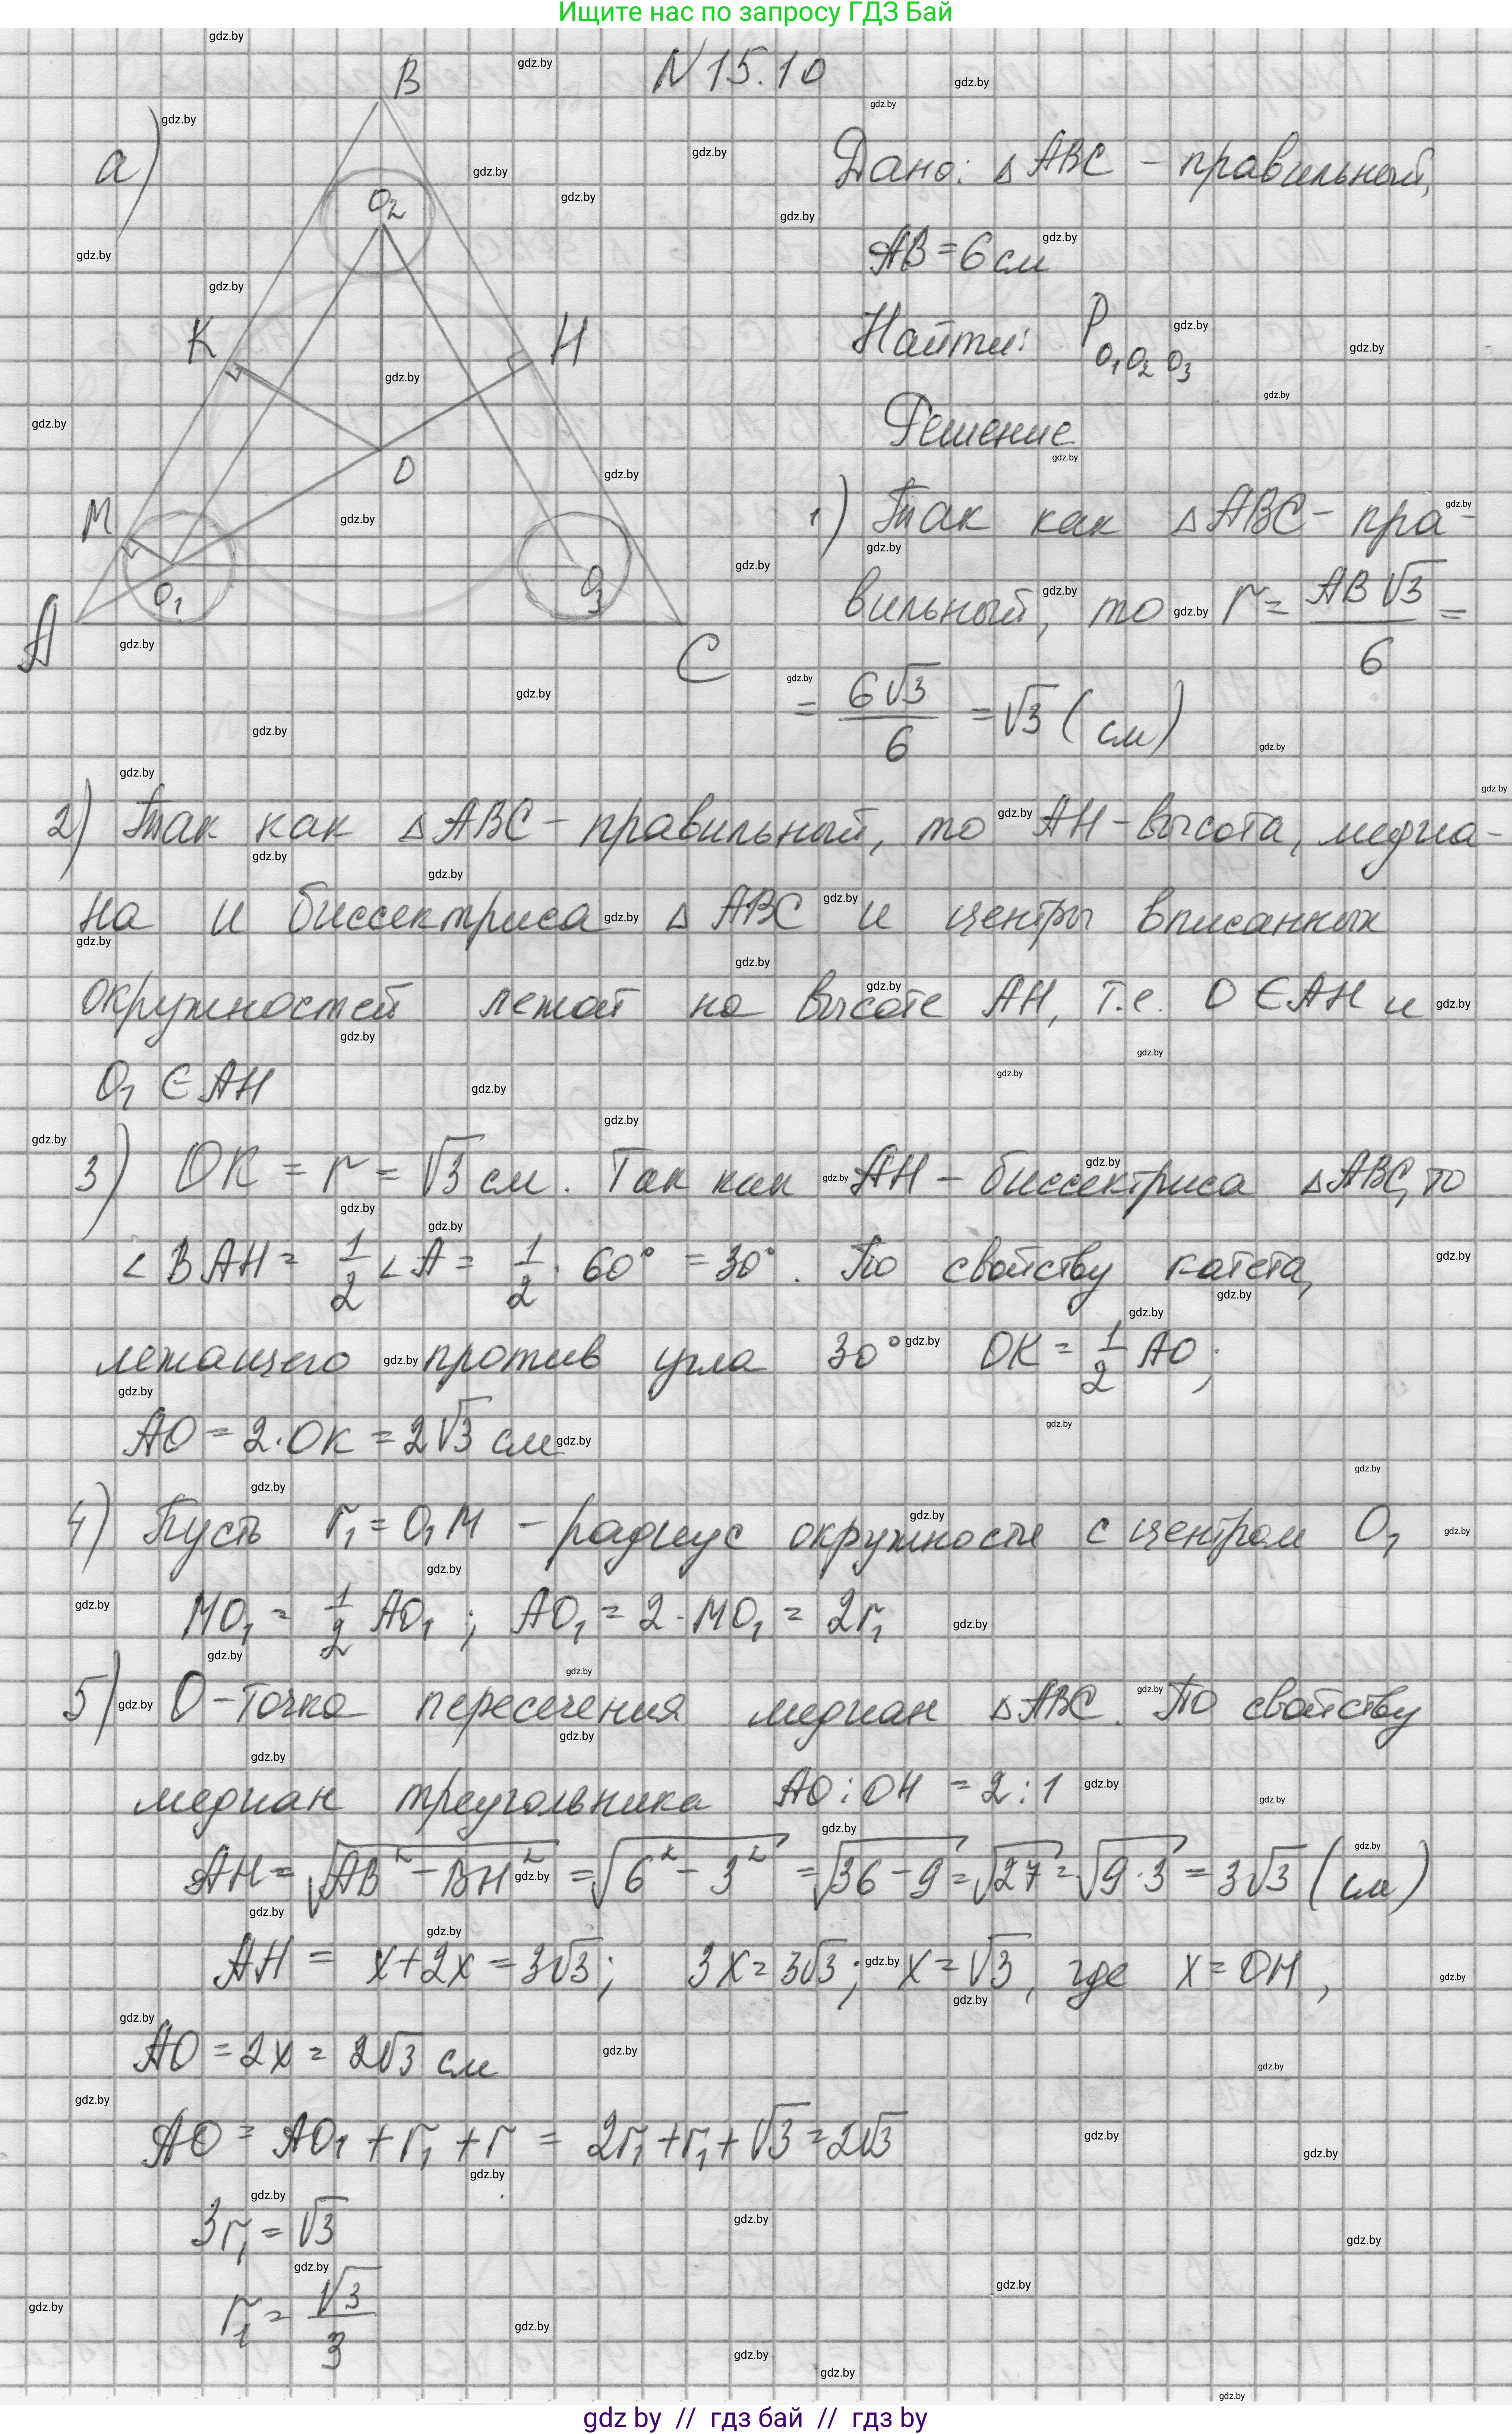 Ищите нас по запросу ГДЗ Бай
N 15.10
а)
B
O₂
K
H
O
M
O₁
O₃
A
C
Дано: △ABC - правильный,
AB = 6 см
Найти: P O₁O₂O₃
Решение
1) Так как △ABC - пра-
вильный, то r = AB√3/6 =
= 6√3/6 = √3 (см)
2) Так как △ABC - правильный, то AH - высота, медиа-
на и биссектриса △ABC и центры вписанных
окружностей лежат на высоте AH, т.е. O ∈ AH и
O₁ ∈ AH
3) OK = r = √3 см. Так как AH - биссектриса △ABC, то
∠BAH = 1/2 ∠A = 1/2 · 60° = 30°. По свойству катета,
лежащего против угла 30° OK = 1/2 AO;
AO = 2·OK = 2√3 см
4) Пусть r₁ = O₁M - радиус окружности с центром O₁
MO₁ = 1/2 AO₁; AO₁ = 2·MO₁ = 2r₁
5) O - точка пересечения медиан △ABC. По свойству
медиан треугольника AO : OH = 2 : 1
AH = √(AB² - BH²) = √(6² - 3²) = √(36 - 9) = √27 = √(9·3) = 3√3 (см)
AH = x + 2x = 3√3; 3x = 3√3; x = √3, где x = OH,
AO = 2x = 2√3 см
AO = AO₁ + r₁ + r = 2r₁ + r₁ + √3 = 2√3
3r₁ = √3
r₁ = √3/3
gdz by // гдз бай // гдз by